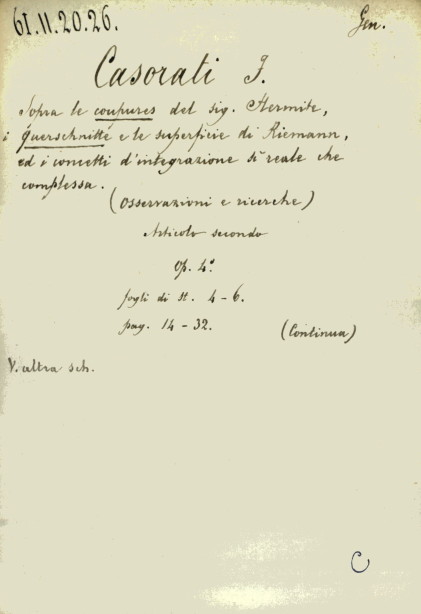 61.11.20.26.
Gen.
Casorati F.
Sopra le coupures del sig. Hermite,
i Querschnitte e le superficie di Riemann,
ed i concetti d'integrazione sì reale che
complessa.
(Osservazioni e ricerche)
Articolo secondo
Op. 4°
fogli di st. 4-6.
pag. 14-32.
(Continua)
V. altra sch.
C